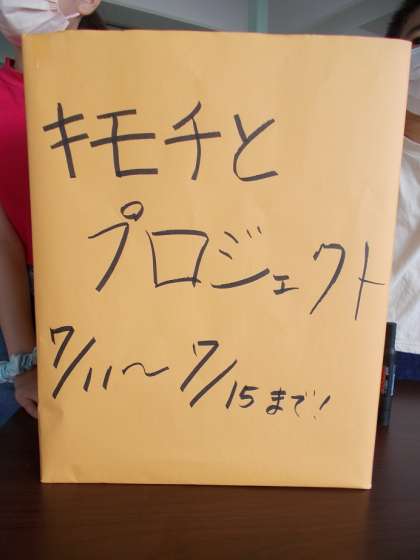 キモチと
プロジェクト
7/11～7/15まで!